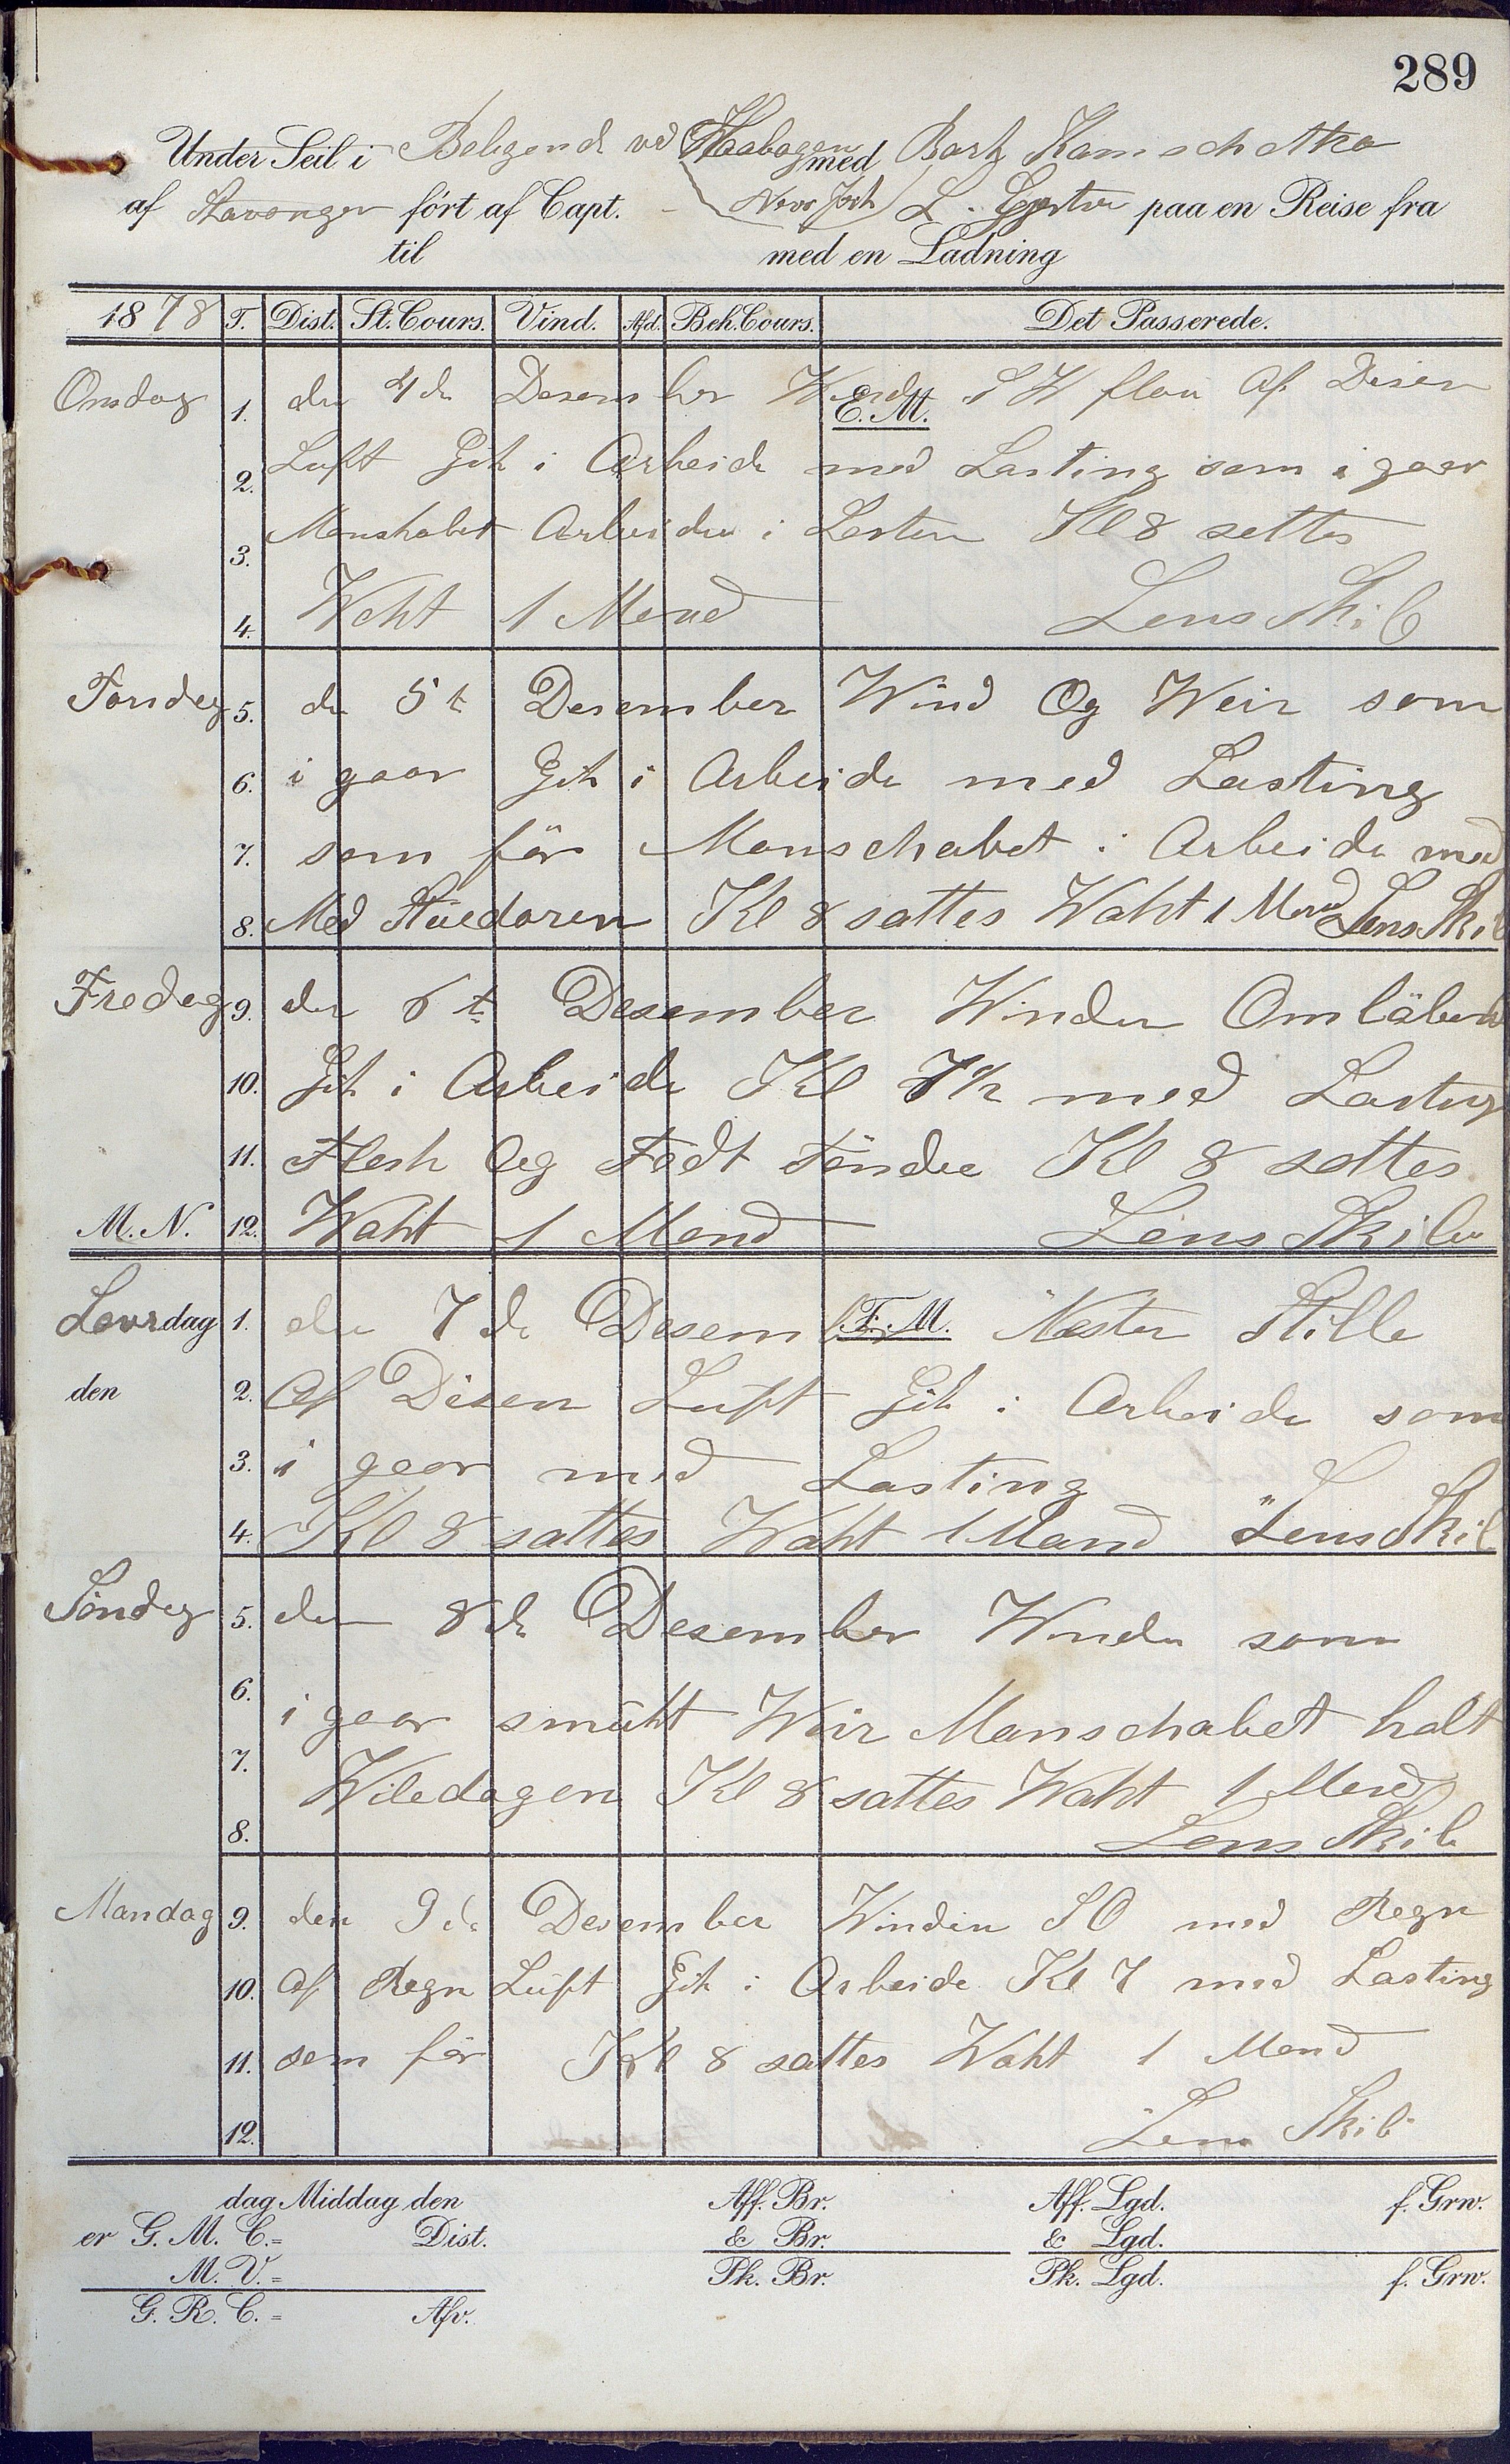 289
Under Seil i Beligend ved Haabogen med Bark Kamschatka
af Stavanger ført af Capt. New York L. paa en Reise fra
til med en Ladning
1878 T. Dist. St. Cours. Vind. Afd. Beh. Cours. Det Passerede.
Onsdag 1. den 4de Desember Winden E. M. SW flau Af Disen
2. Luft Gik i Arbeide med Lasting som i gaar
3. Manskabet Arbeider i Lasten Kl 8 settes
4. Waht 1 Mand Lens Skib
Torsdag 5. den 5te Desember Wind Og Weir som
6. i gaar Gik i Arbeide med Lasting
7. som för Manschabet i Arbeide med
8. Med Stüedoren Kl 8 sattes Waht 1 Mand Lens Skib
Fredag 9. den 6te Desember Winden Omlöbend
10. Gik i Arbeide Kl 7½ med Lasting
11. Flesk Og Fedt Tönder Kl 8 sattes
M. N. 12. Waht 1 Mand Lens Skib
Leverdag 1. den 7de Desember F. M. Nesten Stille
den 2. Af Disen Luft Gik i Arbeide som
3. i gaar med Lasting
4. Kl 8 sattes Waht 1 Mand Lens Skib
Söndag 5. den 8de Desember Winden som
6. i gaar smukt Weir Manschabet halt
7. Wiledagen Kl 8 sattes Waht 1 Mand
8. Lens Skib
Mandag 9. den 9de Desember Winden SO med Regn
10. Af Regn Luft Gik i Arbeide Kl 7 med Lasting
11. som för Kl 8 sattes Waht 1 Mand
12. Lens Skib
dag Middag den Aff. Br. Aff. Lgd. f. Grw.
er G. M. C.= Dist. & Br. & Lgd.
M. V.= Pk. Br. Pk. Lgd. f. Grw.
G. R. C.= Afv.